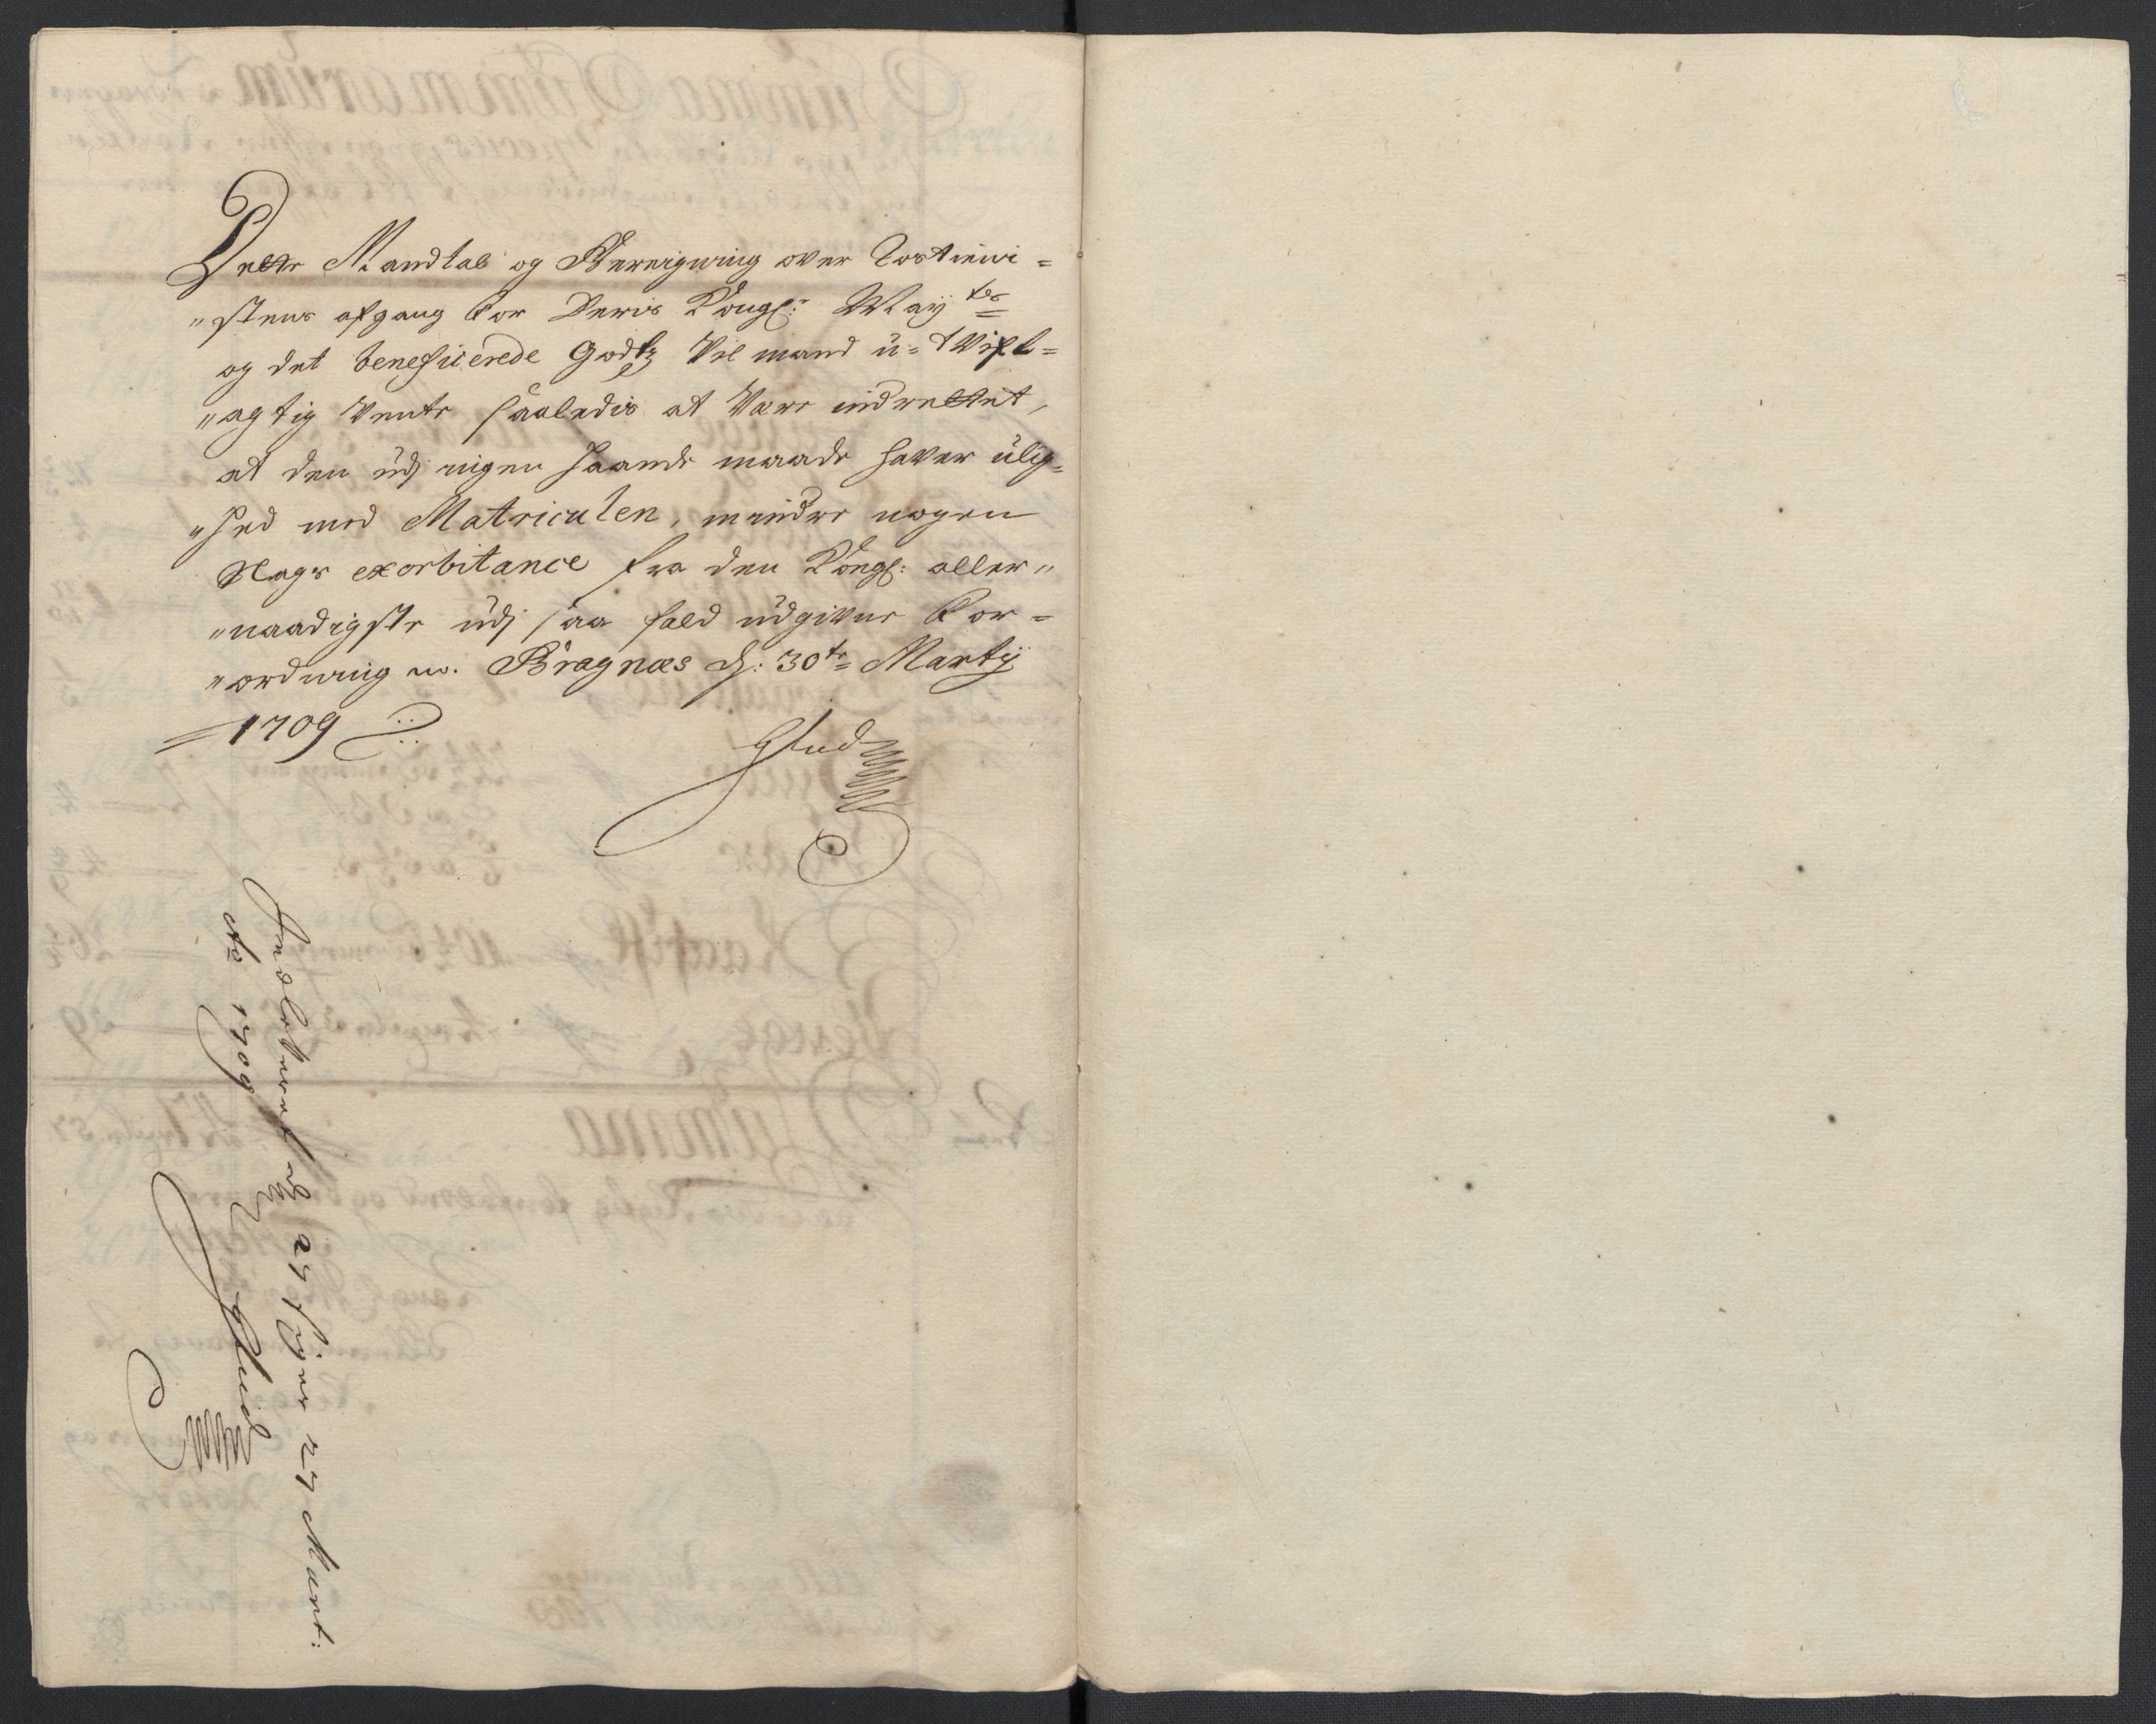 Dette Mandtal og Beregning over Rostieni=
"stens afgang for Deris Kongl: May:tes
og det beneficerede Godtz vil mand u=tvifl=
"agtig vente saaledis at være indrettet,
at den udj ingen haande maade haver ulig=
"hed med Matriculen, mindre nogen
slags exorbitance fra den Kongl: aller"
"naadigste udj saa fald udgivne For=
"ordning etc. Bragnæs d: 30te Martij
1709
Glud
Indleveret d 27 Mart:
Ao 1709
Glud